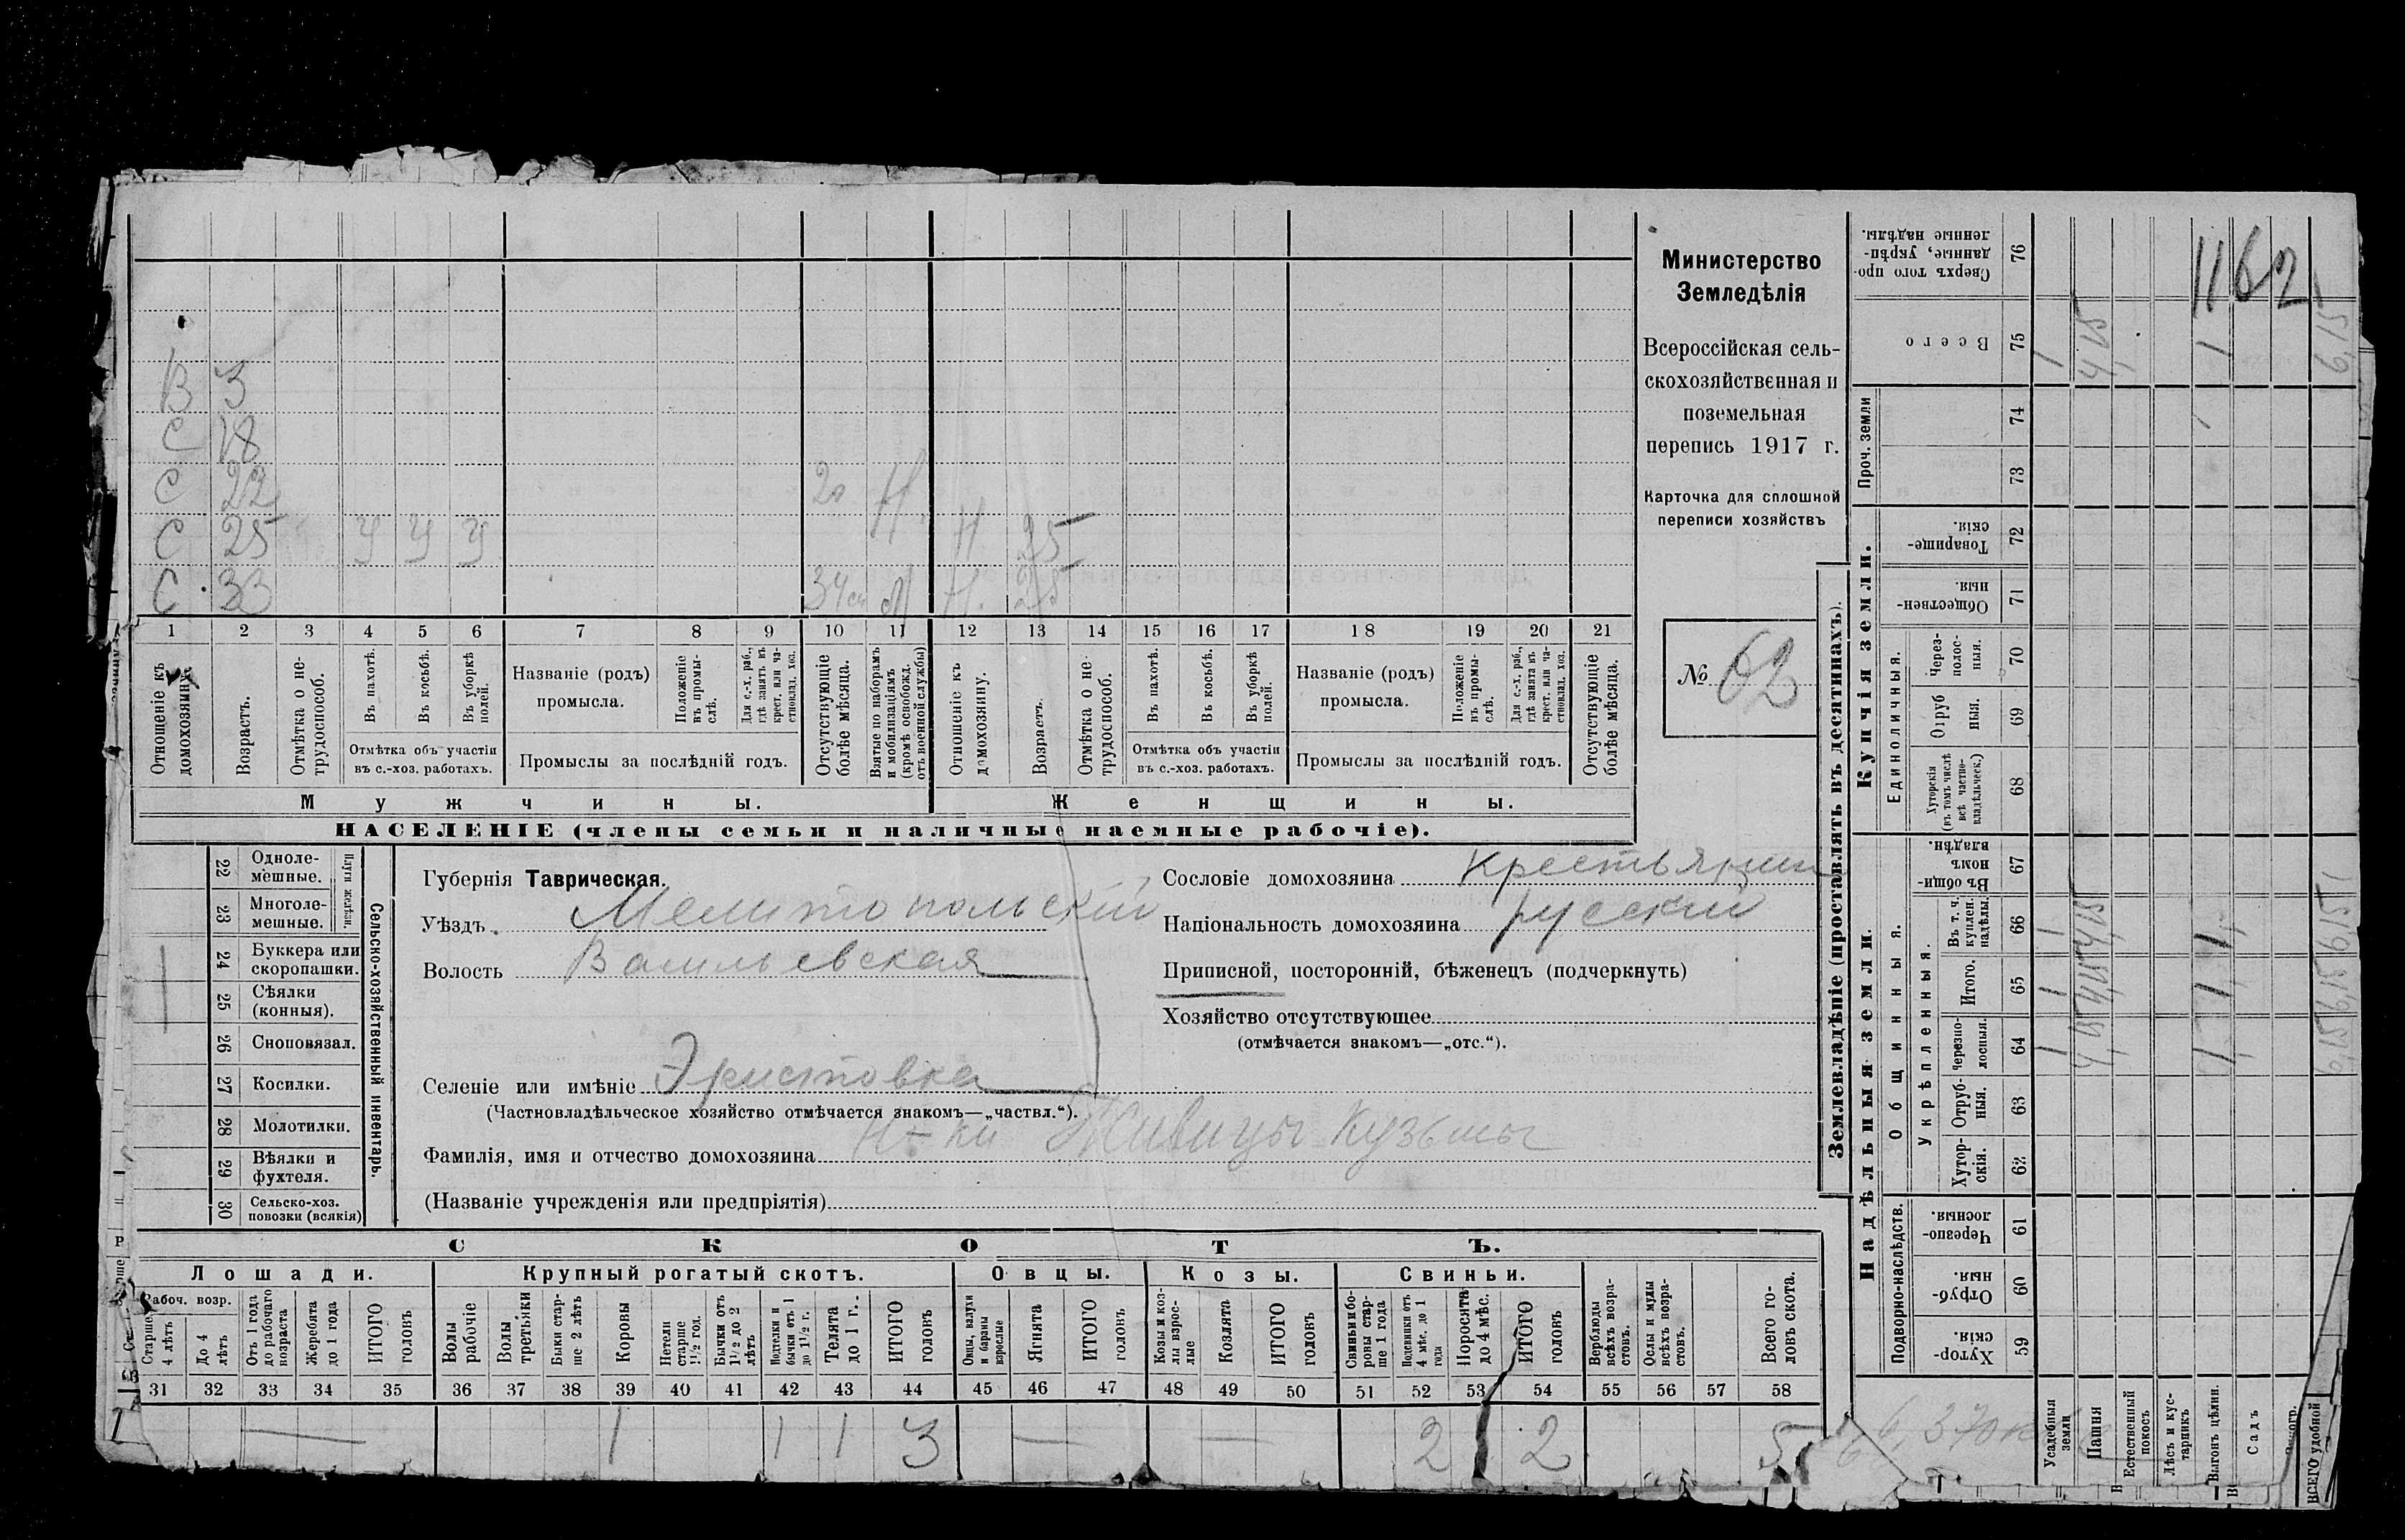 В 3
С 18
С 22 20 Н.
С 25 У У У Н 25
С 33 Н. 25
1 2 3 4 5 6 7 8 9 10 11 12 13 14 15 16 17 18 19 20 21
Отношеніе къ домохозяину.
Возрастъ.
Отмѣтка о не-трудоспособ.
Въ пахотѣ.
Въ косьбѣ.
Въ уборкѣ полей.
Отмѣтка объ участіи въ с.-хоз. работахъ.
Названіе (родъ) промысла.
Положеніе въ промы-слѣ.
Для с.-х. раб., гдѣ занятъ въ крест. или ча-стновлад. хоз.
Промыслы за послѣдній годъ.
Отсутствующіе болѣе мѣсяца.
Взятые по наборамъ и мобилизаціямъ (кромѣ освобожд. отъ военной службы)
Отношеніе къ домохозяину.
Возрастъ.
Отмѣтка о не-трудоспособ.
Въ пахотѣ.
Въ косьбѣ.
Въ уборкѣ полей.
Отмѣтка объ участіи въ с.-хоз. работахъ.
Названіе (родъ) промысла.
Положеніе въ промы-слѣ.
Для с.-х. раб., гдѣ занята въ крест. или ча-стновлад. хоз.
Промыслы за послѣдній годъ.
Отсутствующіе болѣе мѣсяца.
Мужчины.
Женщины.
НАСЕЛЕНІЕ (члены семьи и наличные наемные рабочіе).
Министерство
Земледѣлія
Всероссійская сель-
скохозяйственная и
поземельная
перепись 1917 г.
Карточка для сплошной
переписи хозяйствъ
№ 62
22 Одноле-мешные.
23 Многоле-мешные.
Плуги желѣзн.
24 Буккера или скоропашки.
25 Сѣялки (конныя).
26 Сноповязал.
27 Косилки.
28 Молотилки.
29 Вѣялки и фухтеля.
30 Сельско-хоз. повозки (всякія)
Сельско-хозяйственный инвентарь.
Губернія Таврическая.
Уѣздъ Мелитопольскій
Волость Васильевская
Селеніе или имѣніе Эристовка
(Частновладѣльческое хозяйство отмѣчается знакомъ—„частвл.“).
Фамилія, имя и отчество домохозяина Н-ки Живицы Кузьмы
(Названіе учрежденія или предпріятія)
Сословіе домохозяина Крестьянин
Національность домохозяина русскій
Приписной, посторонній, бѣженецъ (подчеркнуть)
Хозяйство отсутствующее
(отмѣчается знакомъ—„отс.“).
СКОТЪ.
Лошади. Крупный рогатый скотъ. Овцы. Козы. Свиньи.
Рабоч. возр.
Старше 4 лѣтъ
До 4 лѣтъ
Отъ 1 года до рабочаго возраста
Жеребята до 1 года
ИТОГО головъ
Волы рабочіе
Волы третьяки
Быки стар-ше 2 лѣтъ
Коровы
Нетели старше 1½ год.
Бычки отъ 1½ до 2 лѣтъ
Подтелки и бычки отъ 1 до 1½ г.
Телята до 1 г.
ИТОГО головъ
Овцы, валухи и бараны взрослые
Ягнята
ИТОГО головъ
Козы и коз-лы взрос-лые
Козлята
ИТОГО головъ
Свиньи и бо-ровы стар-ше 1 года
Подсвинки отъ 4 мѣс. до 1 года
Поросята до 4 мѣс.
ИТОГО головъ
Верблюды всѣхъ возра-стовъ.
Ослы и мулы всѣхъ возра-стовъ.
Всего го-ловъ скота.
31 32 33 34 35 36 37 38 39 40 41 42 43 44 45 46 47 48 49 50 51 52 53 54 55 56 57 58
— 1 1 1 3 — — 2 2 5
Землевладѣніе (проставлять въ десятинахъ).
Надѣльныя земли.
Купчія земли.
Проч. земли
Подворно-наслѣдств.
Общинныя.
Укрѣпленныя.
Единоличныя.
Хутор-скія. 59
Отруб-ныя. 60
Черезпо-лосныя. 61
Хутор-скія. 62
Отруб-ныя. 63
Черезпо-лосныя. 64
Итого. 65
Въ т. ч. куплен. надѣлы. 66
Въ общи-номъ владѣн. 67
Хуторскія (въ томъ числѣ всѣ частно-владѣльческ.) 68
Отруб ныя. 69
Через-полос-ныя. 70
Обществен-ныя. 71
Товарище-скія. 72
73
74
Всего 75
Сверхъ того про-данные, укрѣп-ленные надѣлы. 76
1162
Усадебныя земли
Пашня
Естественный покосъ
Лѣсъ и кус-тарникъ
Выгонъ цѣлин.
Садъ
ВСЕГО удобной